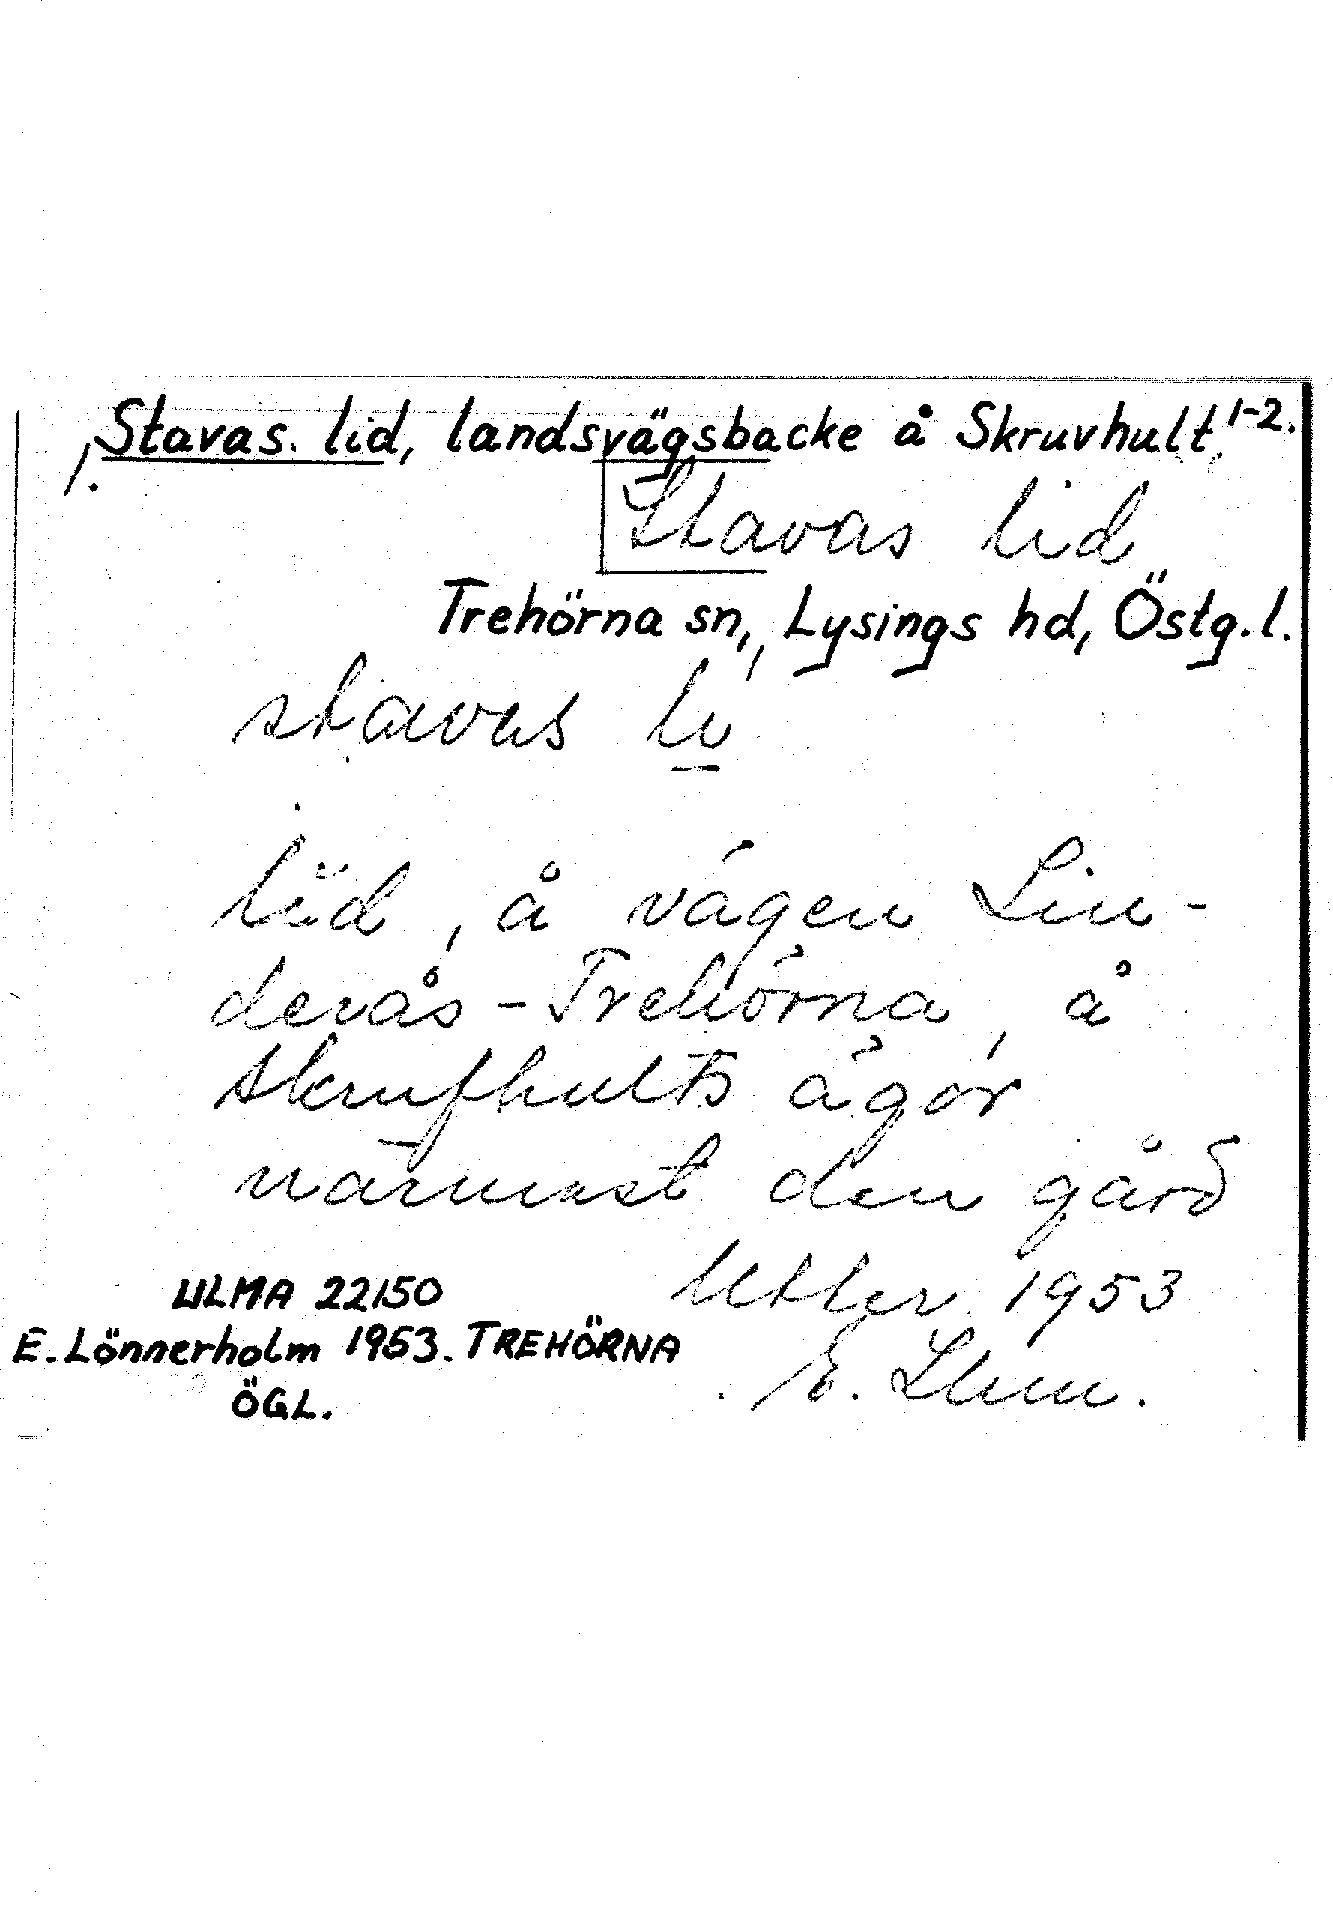 1. Stavas. lid, landsvägsbacke å Skruvhult 1-2.
Stavas lid
Trehörna sn, Lysings hd, Östg.l.
stavas li
lid, å vägen Lin-
derås-Trehörna, å
Skrufhults ägor
närmast den gård
Utter 1953
ULMA 22150
E. Lönnerholm 1953. TREHÖRNA
ÖGL.
E. Lhm.